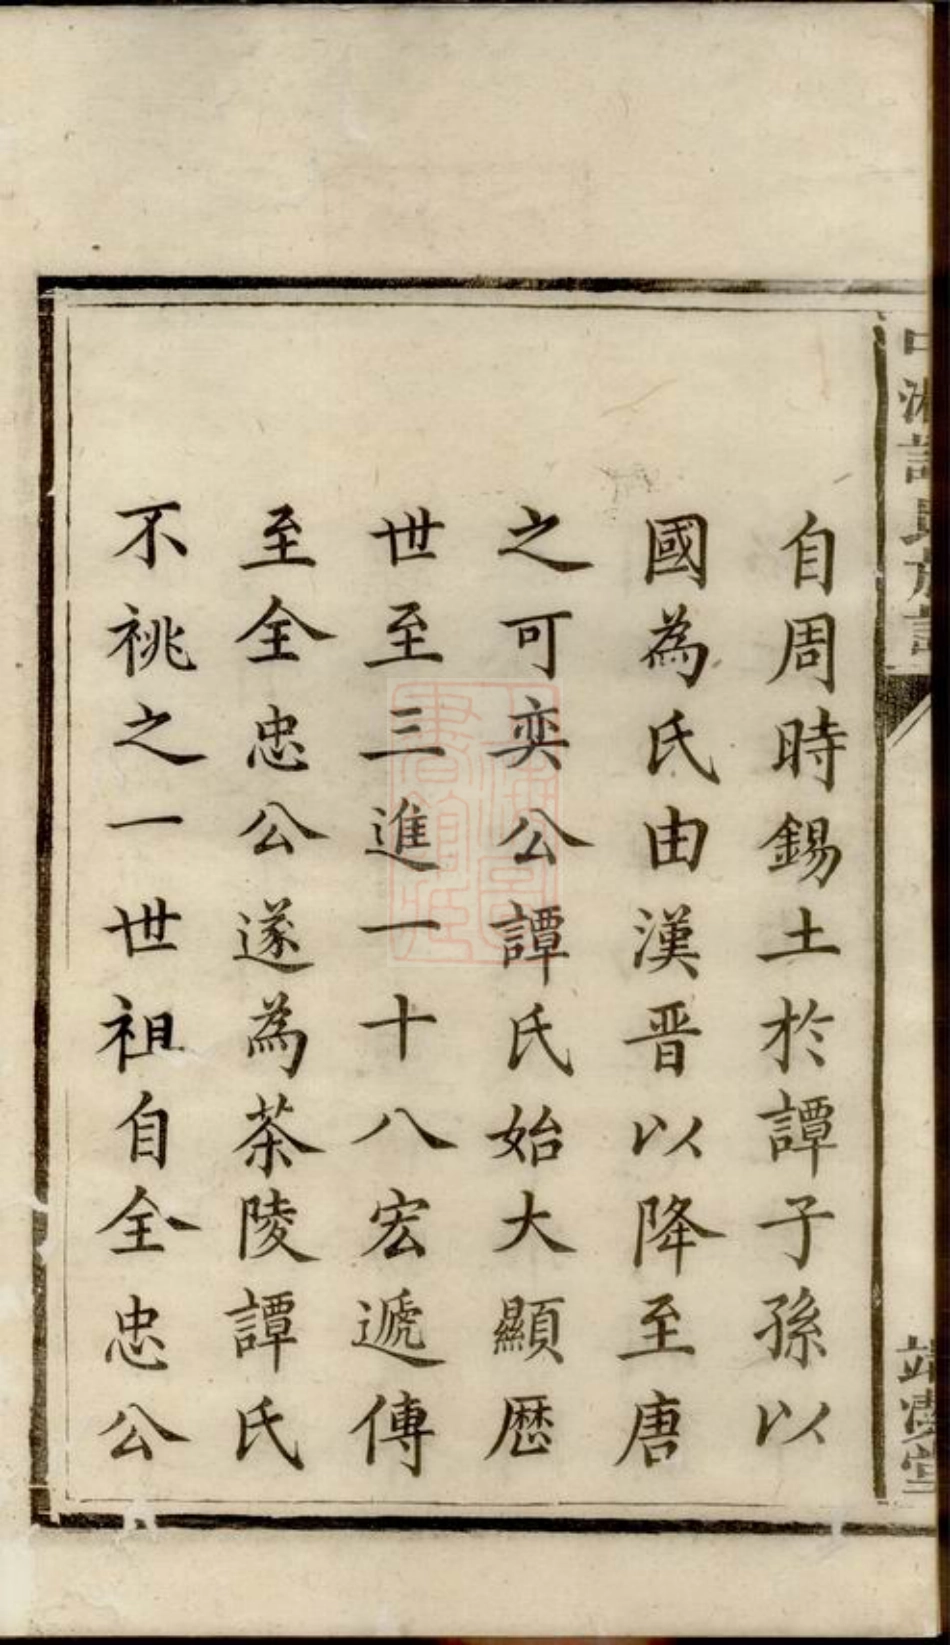 自周時錫土於譚子孫以
國為氏由漢晋以降至唐
之可奕公譚氏始大顯歷
世至三進一十八宏遞傳
至全忠公遂為茶陵譚氏
不祧之一世祖自全忠公